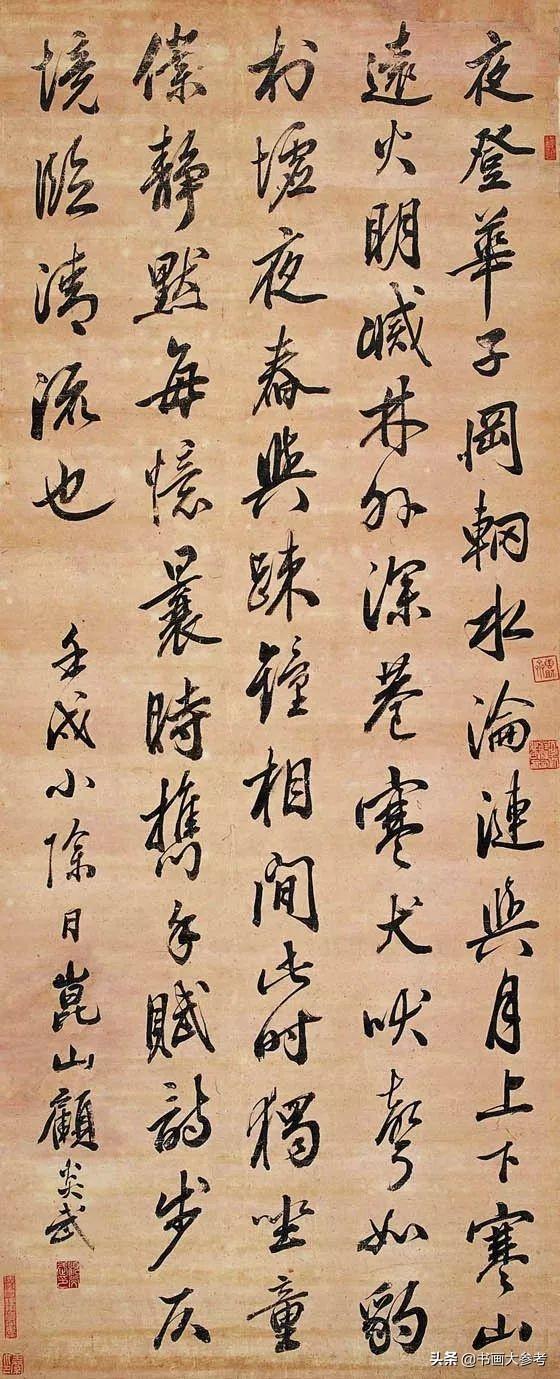 夜登華子岡輞水淪漣與月上下寒山
遠火明滅林外深巷寒犬吠聲如豹
村墟夜舂與疎鐘相間此时獨坐童
僕靜默每憶曩時攜手賦詩步仄
境臨清流也
壬戌小除日崑山顧炎武
头条 @书画大参考